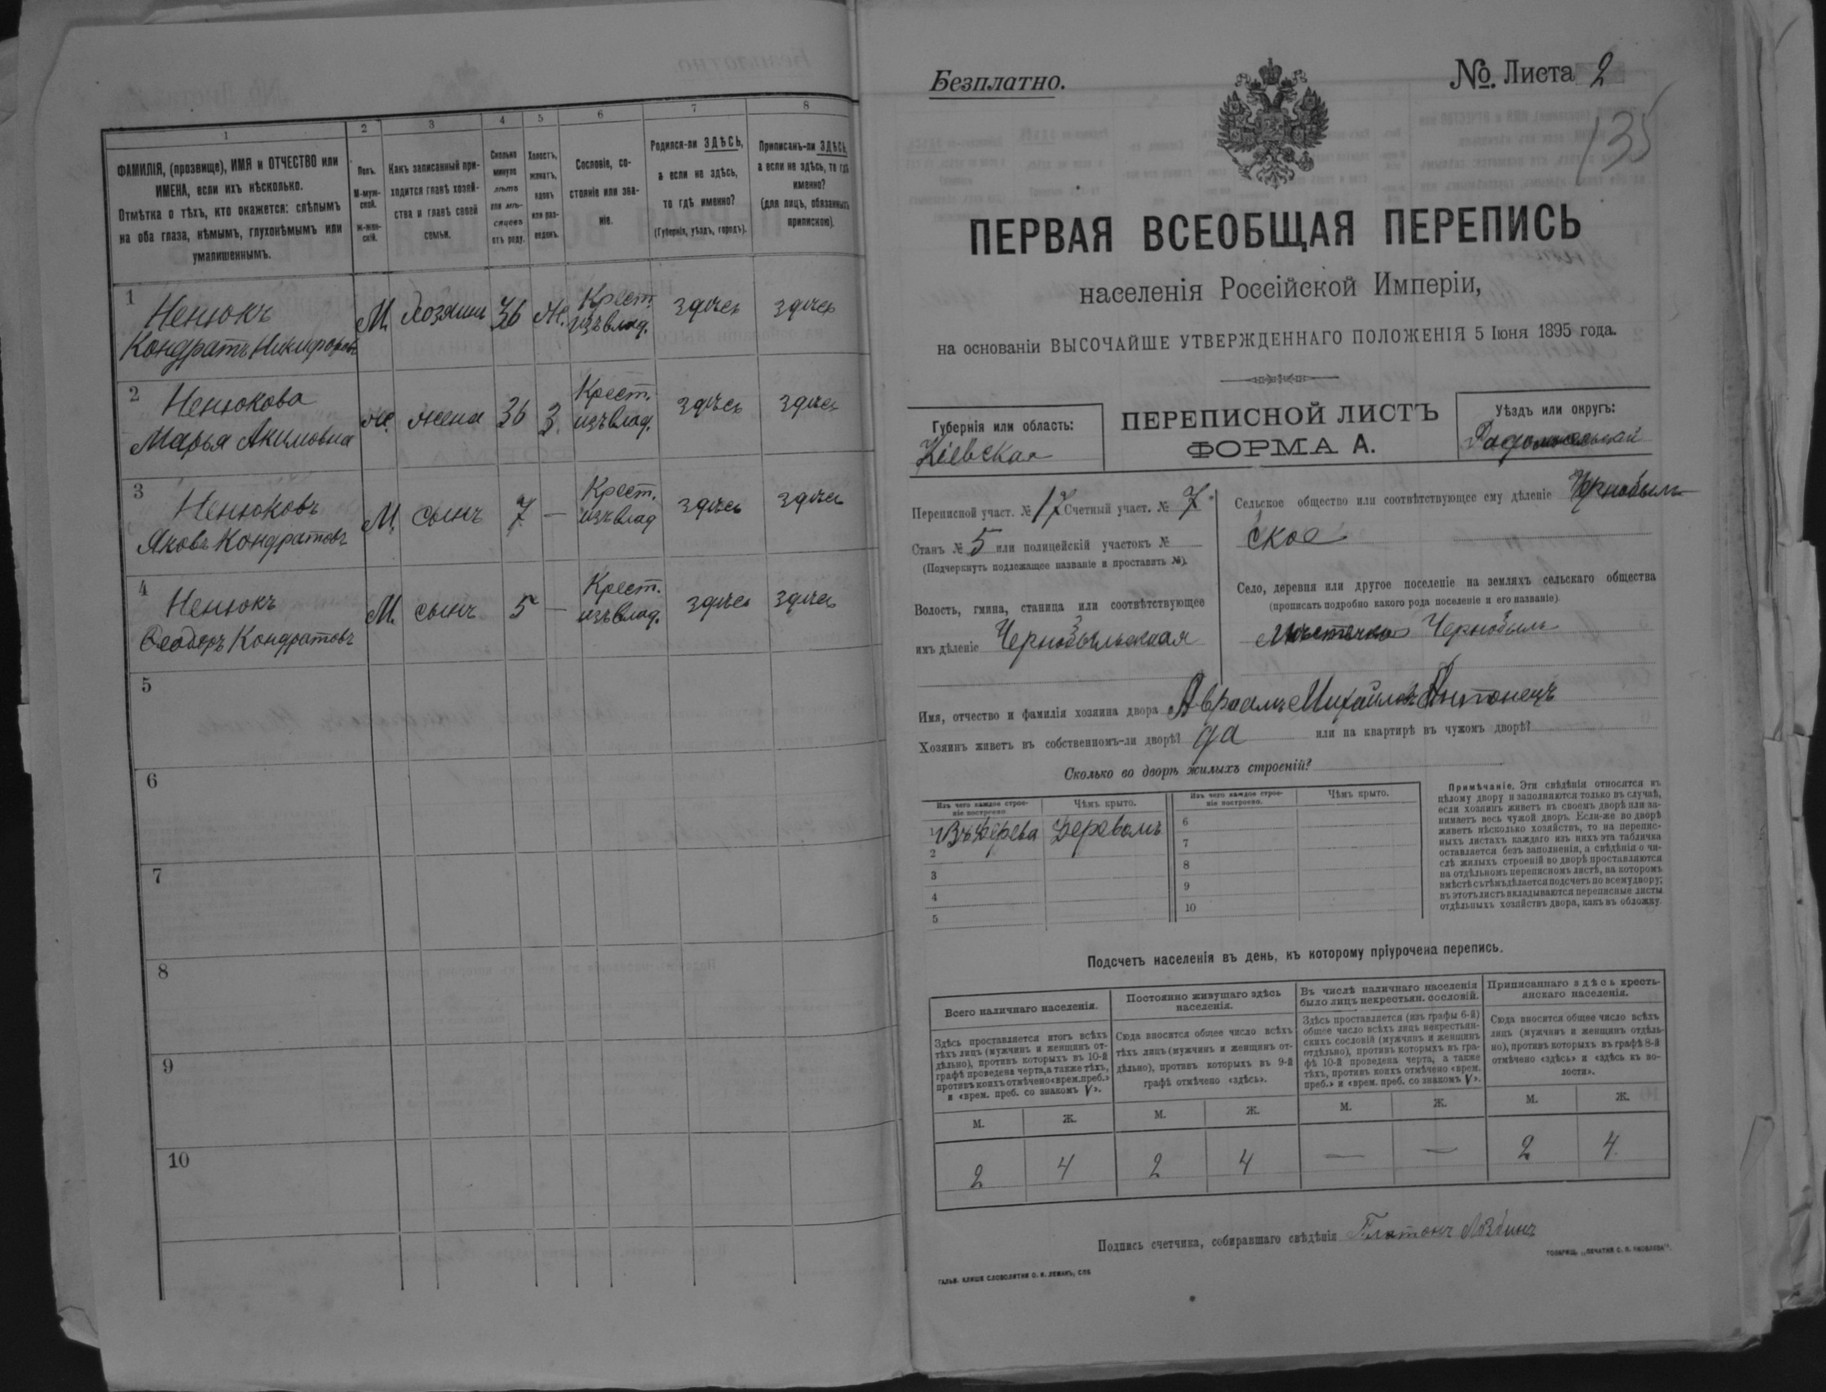 1
2
3
4
5
6
7
8
ФАМИЛІЯ, (прозвище), ИМЯ и ОТЧЕСТВО или
ИМЕНА, если ихъ нѣсколько.
Отмѣтка о тѣхъ, кто окажется: слѣпымъ
на оба глаза, нѣмымъ, глухонѣмымъ или
умалишеннымъ.
Полъ.
М-муж-
ской.
Ж-жен-
скій.
Какъ записанный при-
ходится главѣ хозяй-
ства и главѣ своей
семьи.
Сколько
минуло
лѣтъ
или мѣ-
сяцевъ
отъ роду.
Холостъ,
женатъ,
вдовъ
или раз-
веденъ.
Сословіе, со-
стояніе или зва-
ніе.
Родился-ли ЗДѢСЬ,
а если не здѣсь,
то гдѣ именно?
(Губернія, уѣздъ, городъ).
Приписанъ-ли ЗДѢСЬ,
а если не здѣсь, то гдѣ
именно?
(для лицъ, обязанныхъ
припискою).
1
Ненюкъ
Кондратъ Никифоровъ
М. Хозяинъ 36 Ж. Крест. изъ влад. здѣсь здѣсь
2
Ненюкова
Марья Акимовна
Ж. жена 36 З. Крест. изъ влад. здѣсь здѣсь
3
Ненюковъ
Яковъ Кондратовъ
М. сынъ 7 — Крест. изъ влад здѣсь здѣсь
4
Ненюкъ
Ѳеодоръ Кондратовъ
М. сынъ 5 — Крест. изъ влад. здѣсь здѣсь
5
6
7
8
9
10
Безплатно.
№ Листа 2
135
ПЕРВАЯ ВСЕОБЩАЯ ПЕРЕПИСЬ
населенія Россійской Имперіи,
на основаніи ВЫСОЧАЙШЕ УТВЕРЖДЕННАГО ПОЛОЖЕНІЯ 5 Іюня 1895 года.
Губернія или область:
Кіевская
ПЕРЕПИСНОЙ ЛИСТЪ
ФОРМА А.
Уѣздъ или округъ:
Радомысльскій
Переписной участ. № 17 Счетный участ. № 7
Станъ № 5 или полицейскій участокъ №
(Подчеркнуть подлежащее названіе и проставить №).
Волость, гмина, станица или соотвѣтствующее
имъ дѣленіе Чернобыльская
Сельское общество или соотвѣтствующее ему дѣленіе Чернобыль-
ское
Село, деревня или другое поселеніе на земляхъ сельскаго общества
(прописать подробно какого рода поселеніе и его названіе)
Мѣстечко Чернобыль
Имя, отчество и фамилія хозяина двора Авраамъ Михайловъ Антонецъ
Хозяинъ живетъ въ собственномъ-ли дворѣ? да или на квартирѣ въ чужомъ дворѣ?
Сколько во дворѣ жилыхъ строеній?
Изъ чего каждое строе-
ніе построено.
Чѣмъ крыто.
Изъ чего каждое строе-
ніе построено.
Чѣмъ крыто.
1 дерева деревомъ
2
3
4
5
6
7
8
9
10
Примѣчаніе. Эти свѣдѣнія относятся къ
цѣлому двору и заполняются только въ случаѣ,
если хозяинъ живетъ въ своемъ дворѣ или за-
нимаетъ весь чужой дворъ. Если-же во дворѣ
живетъ нѣсколько хозяйствъ, то на перепис-
ныхъ листахъ каждаго изъ нихъ эта табличка
оставляется безъ заполненія, а свѣдѣнія о чи-
слѣ жилыхъ строеній во дворѣ проставляются
на отдѣльномъ переписномъ листѣ, на которомъ
вмѣстѣ съ тѣмъ дѣлается подсчетъ по всему двору;
въ этотъ листъ вкладываются переписные листы
отдѣльныхъ хозяйствъ двора, какъ въ обложку.
Подсчетъ населенія въ день, къ которому пріурочена перепись.
Всего наличнаго населенія.
Здѣсь проставляется итогъ всѣхъ
тѣхъ лицъ (мужчинъ и женщинъ от-
дѣльно), противъ которыхъ въ 10-й
графѣ проведена черта, а также тѣхъ,
противъ коихъ отмѣчено «врем. преб.»
и «врем. проб. со знакомъ V».
Постоянно живущаго здѣсь
населенія.
Сюда вносится общее число всѣхъ
тѣхъ лицъ (мужчинъ и женщинъ от-
дѣльно), противъ которыхъ въ 9-й
графѣ отмѣчено «здѣсь».
Въ числѣ наличнаго населенія
было лицъ некрестьян. сословій.
Здѣсь проставляется (изъ графы 6-й)
общее число всѣхъ лицъ некрестьян-
скихъ сословій (мужчинъ и женщинъ
отдѣльно), противъ которыхъ въ гра-
фѣ 10-й проведена черта, а также
тѣхъ, противъ коихъ отмѣчено «врем.
преб.» и «врем. преб. со знакомъ V».
Приписаннаго здѣсь кресть-
янскаго населенія.
Сюда вносится общее число всѣхъ
лицъ (мужчинъ и женщинъ отдѣль-
но), противъ которыхъ въ графѣ 8-й
отмѣчено «здѣсь» и «здѣсь къ во-
лости».
М. Ж. М. Ж. М. Ж. М. Ж.
2 4 2 4 — — 2 4
Подпись счетчика, собиравшаго свѣдѣнія Платонъ
ГАЛЬВ. КЛИШЕ СЛОВОЛИТНИ О. И. ЛЕМАНЪ, СПБ.
ТОВАРИЩ. „ПЕЧАТНЯ С. П. ЯКОВЛЕВА".